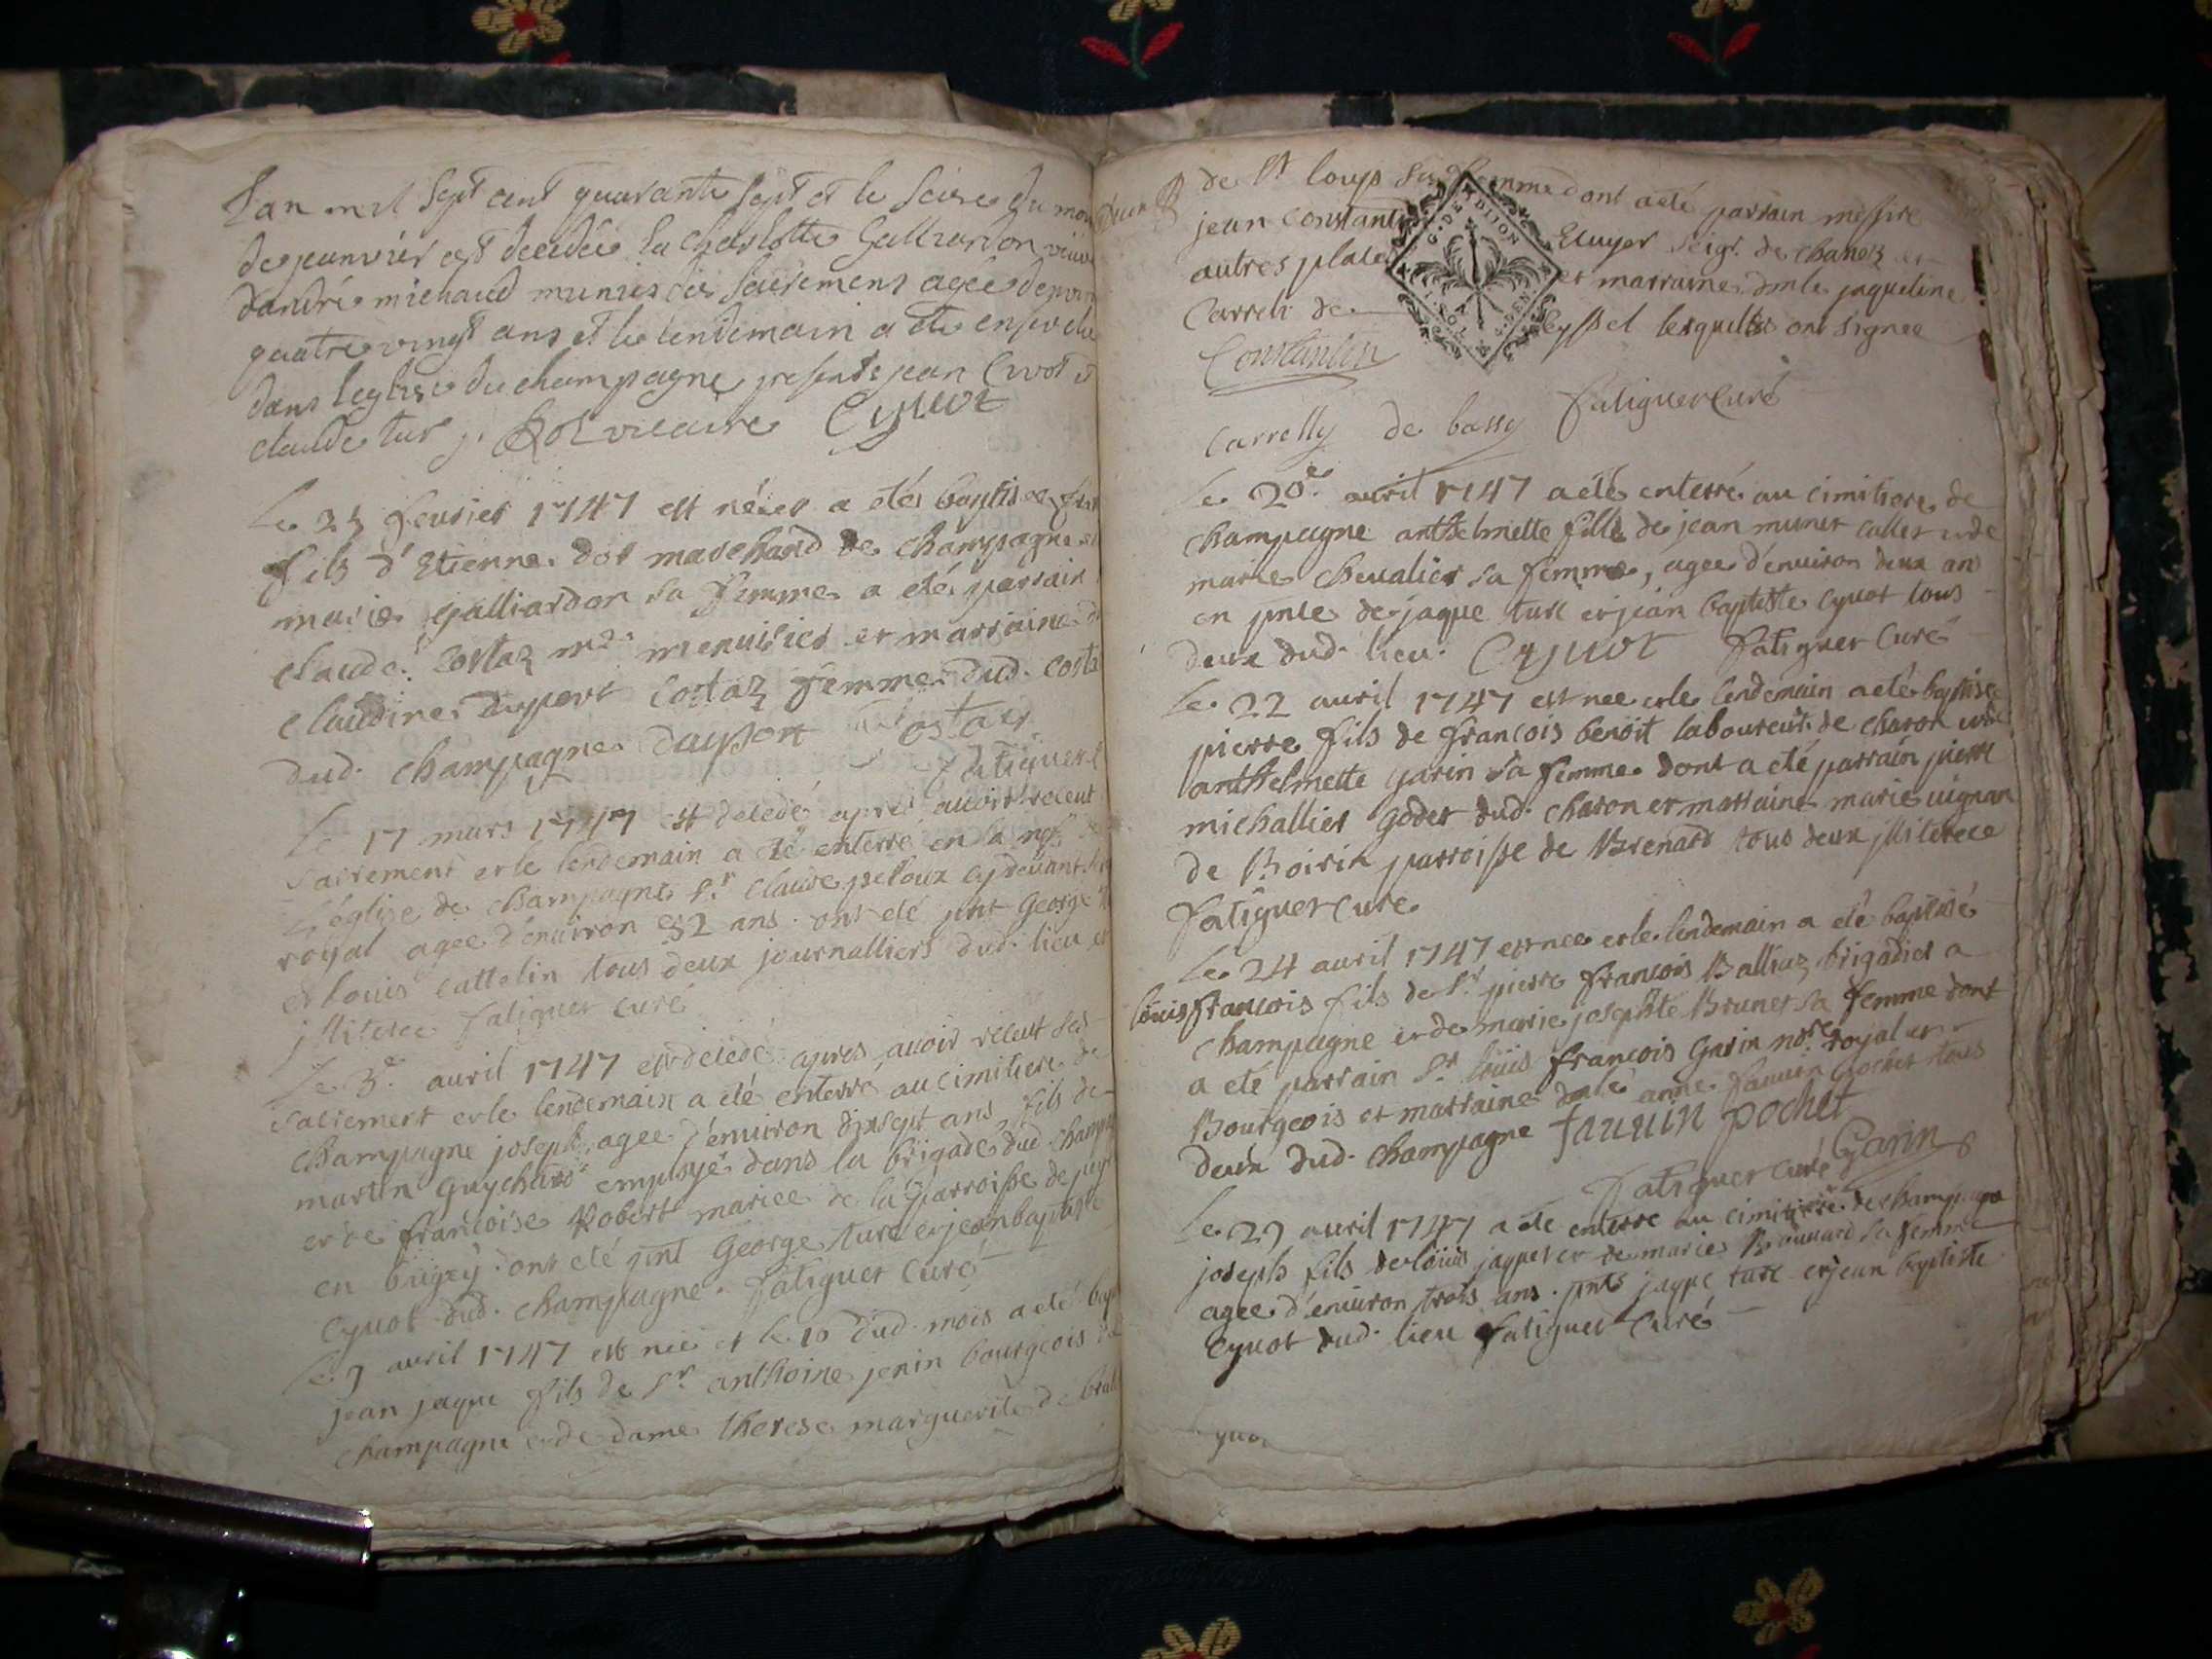 Lan mil Sept cent quarante sept et le Seise du mois
de janvier est decedée la Charlotte Galliardon veuve
dandré michaud munies des sacremens agée denviron
quatre vingt ans et le lendemain a été ensevelie
dans leglise du champagne presents jean Cyvot et
claude turc Vicaire Cyvot
Le 25 fevrier 1747 est né et a été baptisé
fils d'Etienne dor marchand de champagne et
marie galliardon sa femme a eté parrain
claude Costaz md. menuisier et marraine
claudine duport Costaz femme dud. costaz
dud. champagne duport Costaz
fatiguet
Le 17 mars 1747 est decedé apres avoir receut
sacrement et le lendemain a eté enterré en la nef de
l'église de champagne Sr. claude peloux cydevant
royal agee d'environ 82 ans. ont eté pnt George
et Louis cattelin tous deux journalliers dud. lieu
jlliteree fatiguet curé
Le 3e. avril 1747 est decedé apres avoir receut ses
sacrement et le lendemain a eté enterré au cimitiere de
champagne joseph, agee d'environ dixsept ans, fils de
martin Guychard employé dans la brigade dud. champagne
et de francoise Robert mariee de la parroisse de
en bugey. ont eté pnt George turc et jean baptiste
Cyvot dud. champagne. fatiguet curé
Le 9 avril 1747 est née et le 10 dud. mois a eté
jean jaque fils de Sr. anthoine jenin bourgeois
champagne et de dame therese marguerite de
de St. loup sa femme dont a eté parrain messire
jean Constantin Ecuyer Seigr. de chanoz et
autres place et marraine dmle jaqueline
Carreli de Seyssel lesquelles ont signee
Constantin
G. DE DIJON
Carrelly de bassy fatiguet curé
Le 20e. avril 1747 a eté enterré au cimitiere de
champagne anthelmette fille de jean munet et de
marie chevalier sa femme, agee d'environ deux ans
en pnce de jaque turc et jean baptiste cyvot tous
deux dud. lieu. Cyvot fatiguet curé
Le 22 avril 1747 est nee et le lendemain a eté baptisee
pierre fils de francois benoit laboureur de charon et de
anthelmette garin sa femme dont a eté parrain pierre
michallier godet dud. charon et marraine marie vignan
de Boirin parroisse de Brenard tous deux jlliteree
fatiguet curé
Le 24 avril 1747 est nee et le lendemain a eté baptisé
louis francois fils de Sr. pierre francois Balliaz brigadier a
champagne et de marie josephte Brunet sa femme dont
a eté parrain Sr. louis francois Garin nore. royal et
Bourgeois et marraine dmle anne fauvin pochet tous
deux dud. champagne fauvin pochet
fatiguet curé Garin
Le 29 avril 1747 a eté enterre au cimitiere de champagne
joseph fils de louis jaquet et de marie Bouvard sa femme
agee d'environ trois ans. pnts jaque turc et jean baptiste
Cyvot dud. lieu fatiguet curé